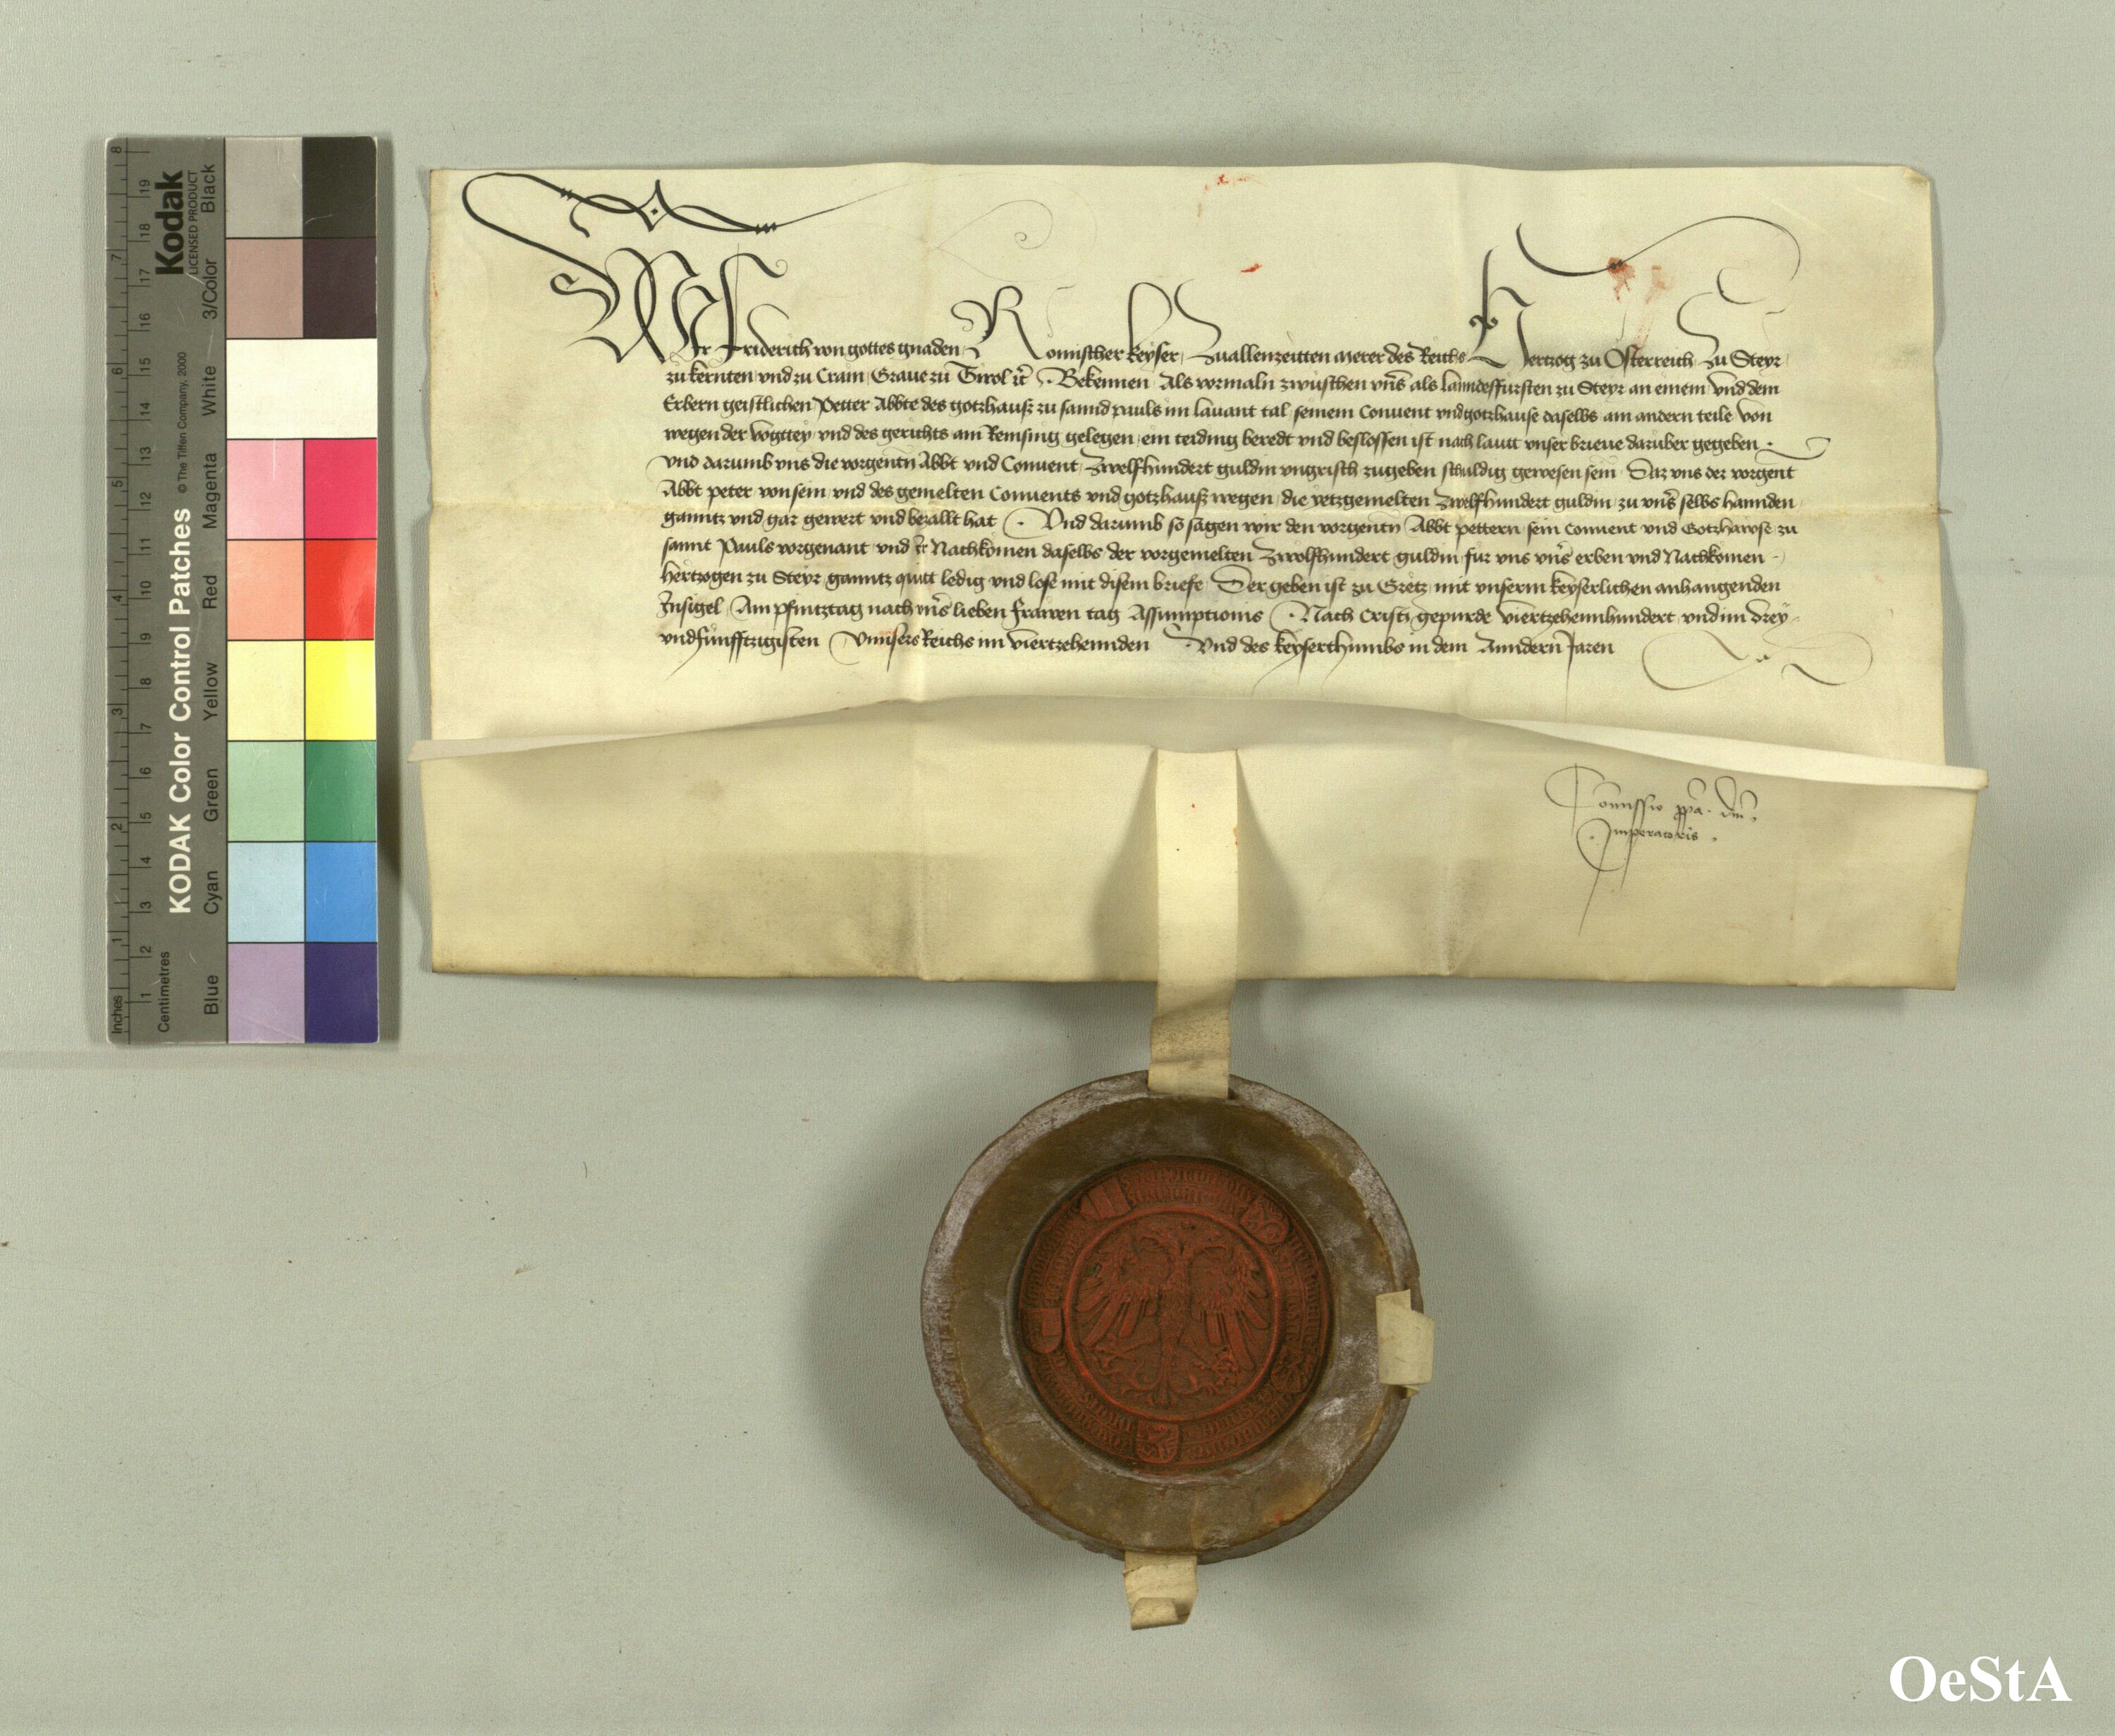 Wir Friderich von gottes gnaden Romischer keyser zuallenzeitten merer des Reichs Hertzog zu Osterreich zu Steyr
zu kernten vnd zu Crain Graue zu Tirol ꝛc̃ Bekennen Als vormaln zwuschen vns̃ als lanndesfursten zu Steyr an einem vnd dem
Erbern geistlichen Petter Abbte des gotzhauß zu sannd pauls im lauant tal seinem Conuent vnd gotzhause daselbs am andern teile von
wegen der vogttey vnd des gerichts am Remsnig gelegen ein teiding beredt vnd beslossen ist nach lautt vnser brieue daruber gegeben
vnd darumb vns die vorgentñ Abbt vnd Conuent zwelfhundert guldin vngrisch zugeben schuldig gewesen sein Daz vns der vorgent
Abbt peter von sein vnd des gemelten Conuents vnd gotzhauß wegen die yetzgemelten zwelfhundert guldin zu vns̃ selbs hannden
ganntz vnd gar gewert vnd bezallt hat Vnd darumb so sagen wir den vorgentñ Abbt pettern sein conuent vnd Gotzhawse zu
sannt Pauls vorgenant vnd Ir Nachkomen daselbs der vorgemelten zwolfhundert guldin fur vns vns̃ erben vnd Nachkomen
hertzogen zu Steyr ganntz quitt ledig vnd lose mit disem briefe Der geben ist zu Gretz mit vnserm keyserlichen anhangenden
Insigel Am pfintztag nach vns̃ lieben frawen tag Assumptionis Nach Cristi gepurde viertzehennhundert vnd im drey
vnd funfftzigisten Vnnsers Reichs im viertzehennden Vnd des keyserthumbs in dem Anndern Jaren
Comissio ꝓpa. dm̃.
Imperatoris.
KODAK Color Control Patches © The Tiffen Company, 2000
Kodak
LICENSED PRODUCT
Blue Cyan Green Yellow Red Magenta White 3/Color Black
Inches 1 2 3 4 5 6 7 8
Centimetres 1 2 3 4 5 6 7 8 9 10 11 12 13 14 15 16 17 18 19
OeStA